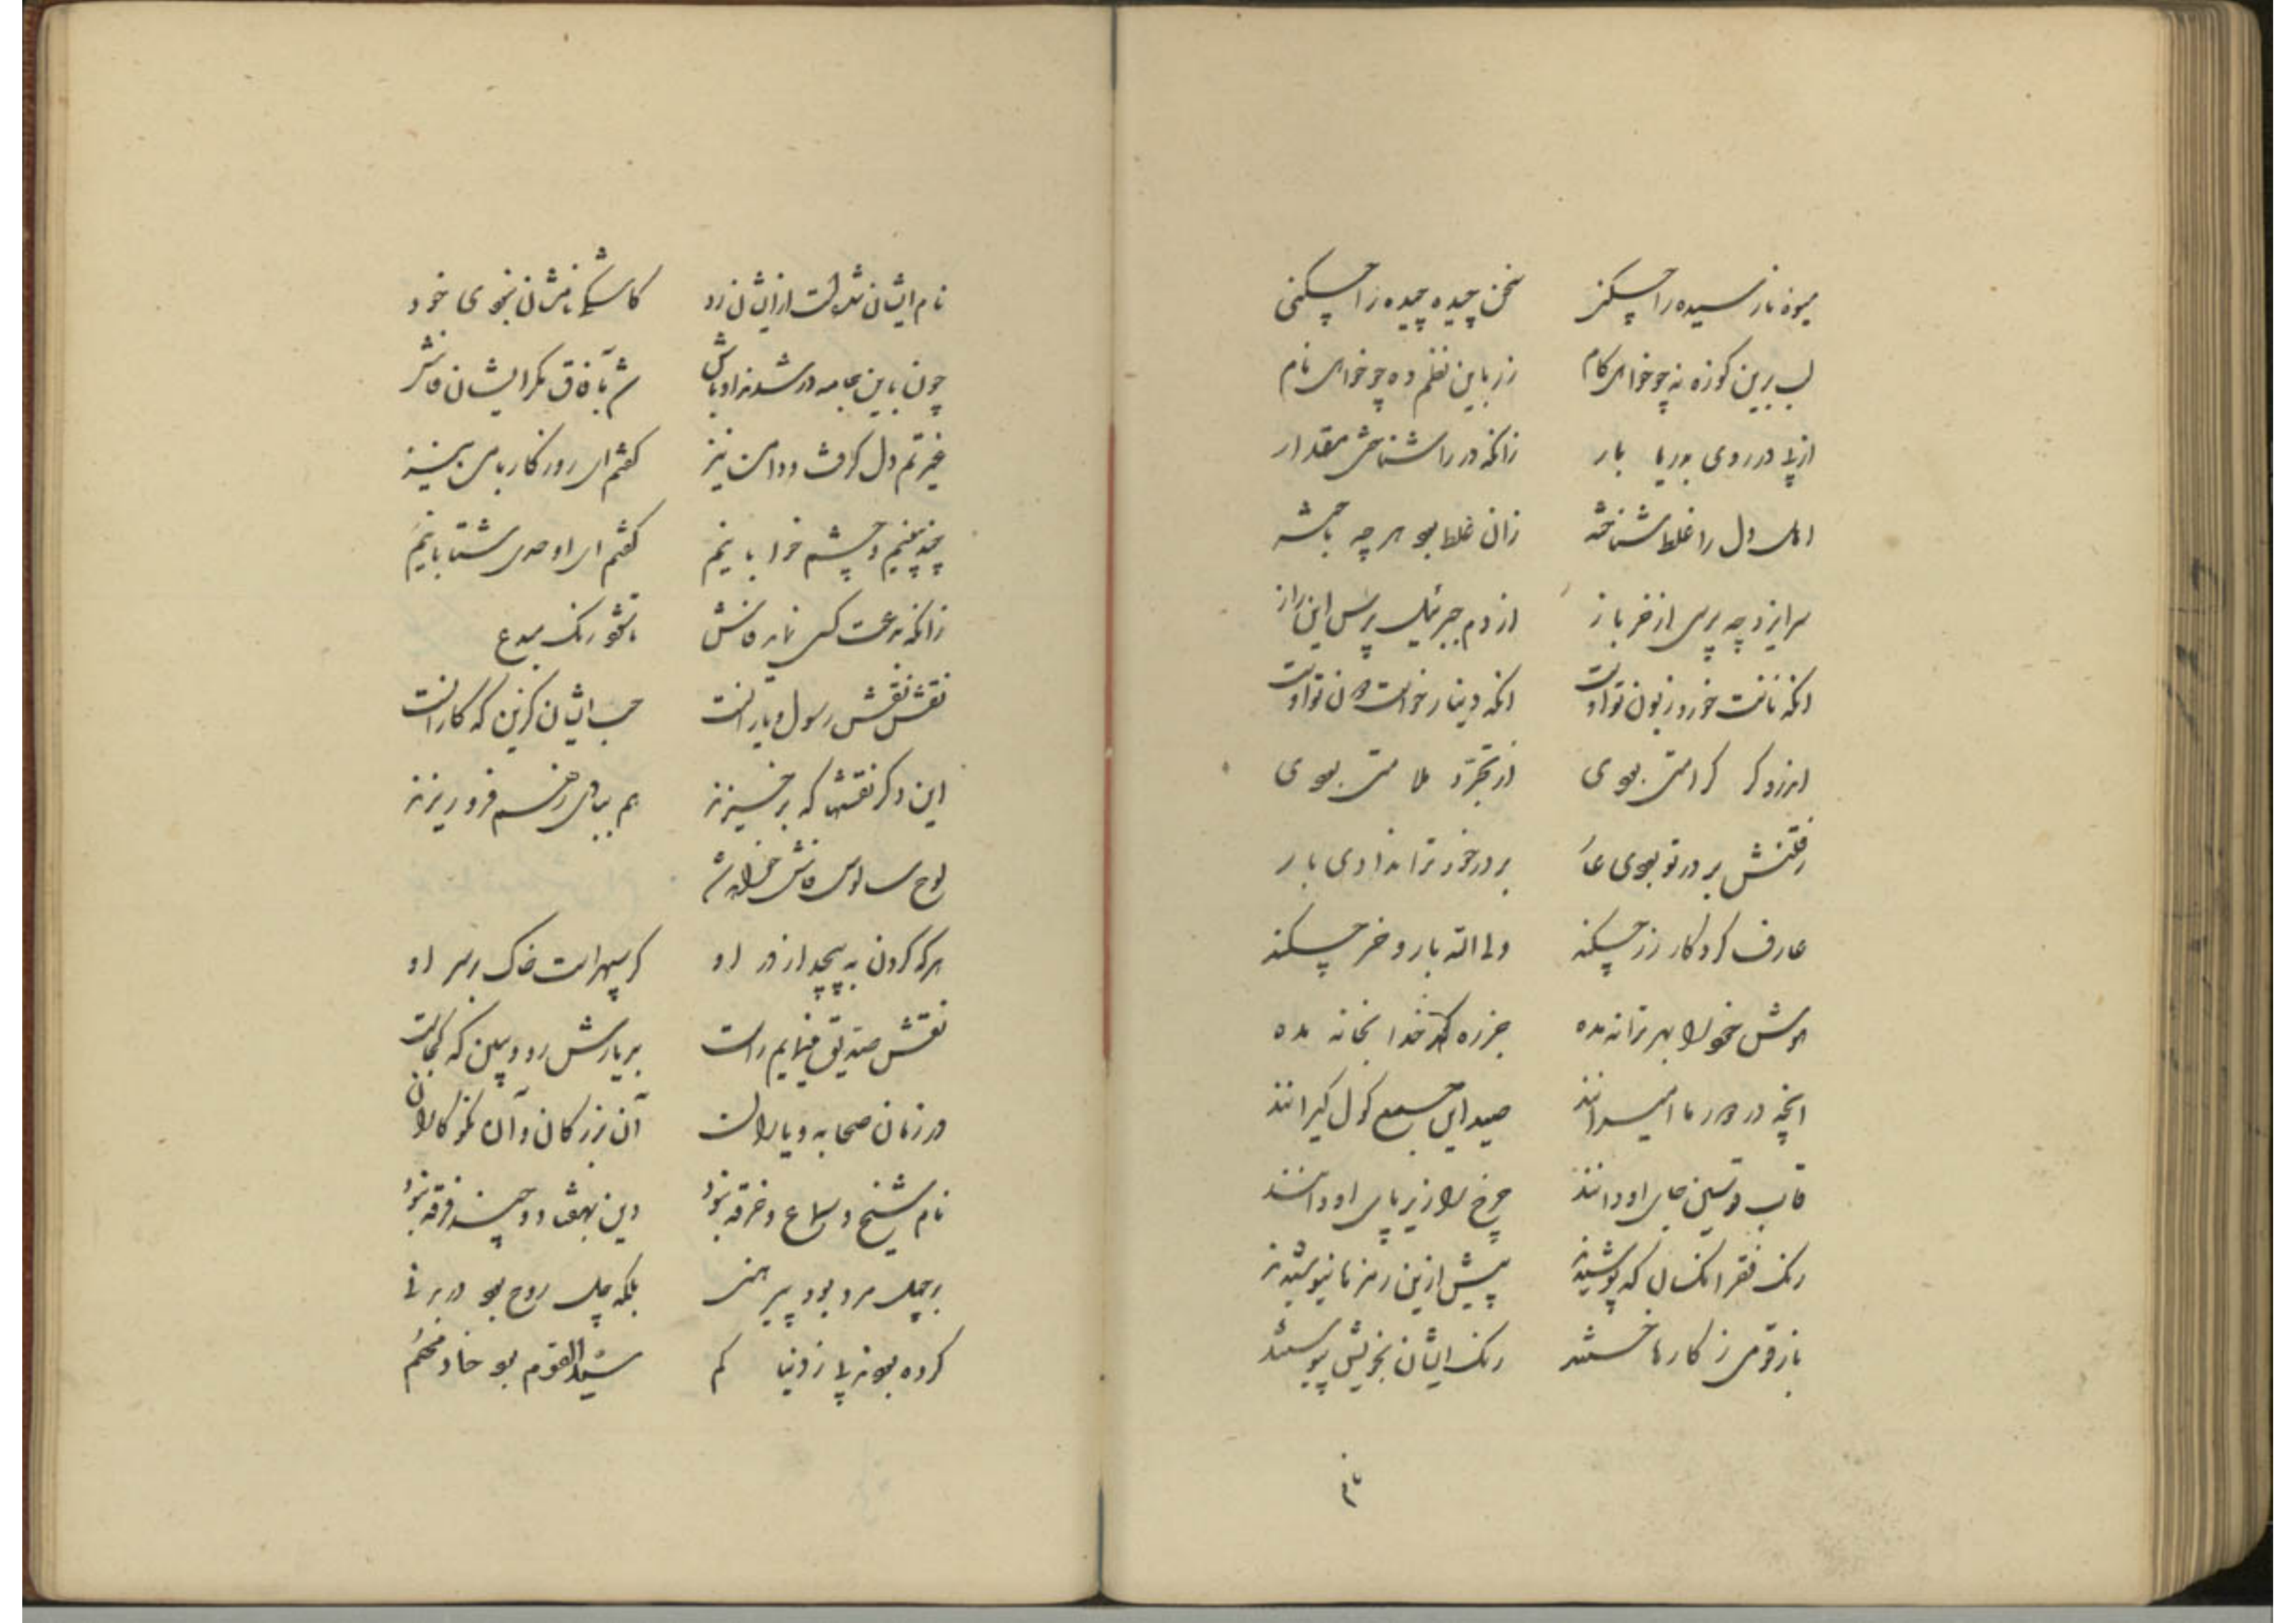 میوه نارسیده را چکنی سخن چیده چیده را چکنی
لب برین کوزه نه چو خواهی کام رز باین نظم ده چو خواهی نام
از پی در روی بدریا بار زانکه در را شناختی مقدار
اهل دل را غلط شناخته زان غلط بود هر چه باخته
سر ایزد چه پرسی از خر باز از دم جبرئیل پرس این راز
انکه نانت خورد زبون تو اوست انکه دینار خواست تو اوست
ارزو کر کرامتی بودی از تجرد ملامتی بودی
رفتنش بر در تو بودی عار بر در خود ترا ندادی بار
عارف کردکار زر چکند ولی الله بار و خر چکند
هوش خود را بهر ترانه مده خر ره کدخدا بخانه مده
انچه در دور ما امیرانند صید این جمع کول کیرانند
قاب قوسین جای او دانند چرخ را زیر پای او دانند
رنک فقر انکسان که پوشیدند پیش ازین رمز ما نیوشیدند
باز قومی ز کارها خستند رنک ایشان بخویش پیوستند
نام ایشان شد است ازیشان زد کاشکی نامشان نخودی خود
چون باین جامه در شدند اوباش شد بآفاق مکر ایشان فاش
غیرتم دل کرفت و دامن نیز کفتم ای روزکار بامن
چند چینیم و چشم خوابانیم کفتم ای اوحدی شتابانیم
زانکه بدعت کسی نماید فاش مشو رنک مبدع
نقش نقش رسول و یارانست حب ایشان کزین که کار انست
این دکر نقشها که برخیزند هم بپای زهم فرو ریزند
لوح سالوس فاش خواهد شد
هرکه کردن به پیچد از در او کر سپهر است خاک بر سر او
نقش صدیق مینمایم راست بر یارش رو و ببین که کجاست
در زمان صحابه و یاران آن بزرکان و آن نکو کاران
نام شیخ و سماع و خرقه نبود دین بهفتاد و چند فرقه نبود
بر چهل مرد بود پیرهنی بلکه چل روح بود در بدنی
کرده بودند پی ز دنیا کم سید القوم بود خادمهم